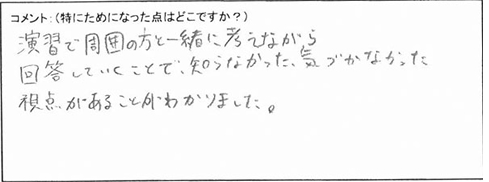 コメント:(特にためになった点はどこですか？)
演習で周囲の方と一緒に考えながら
回答していくことで、知らなかった、気づかなかった
視点があることがわかりました。